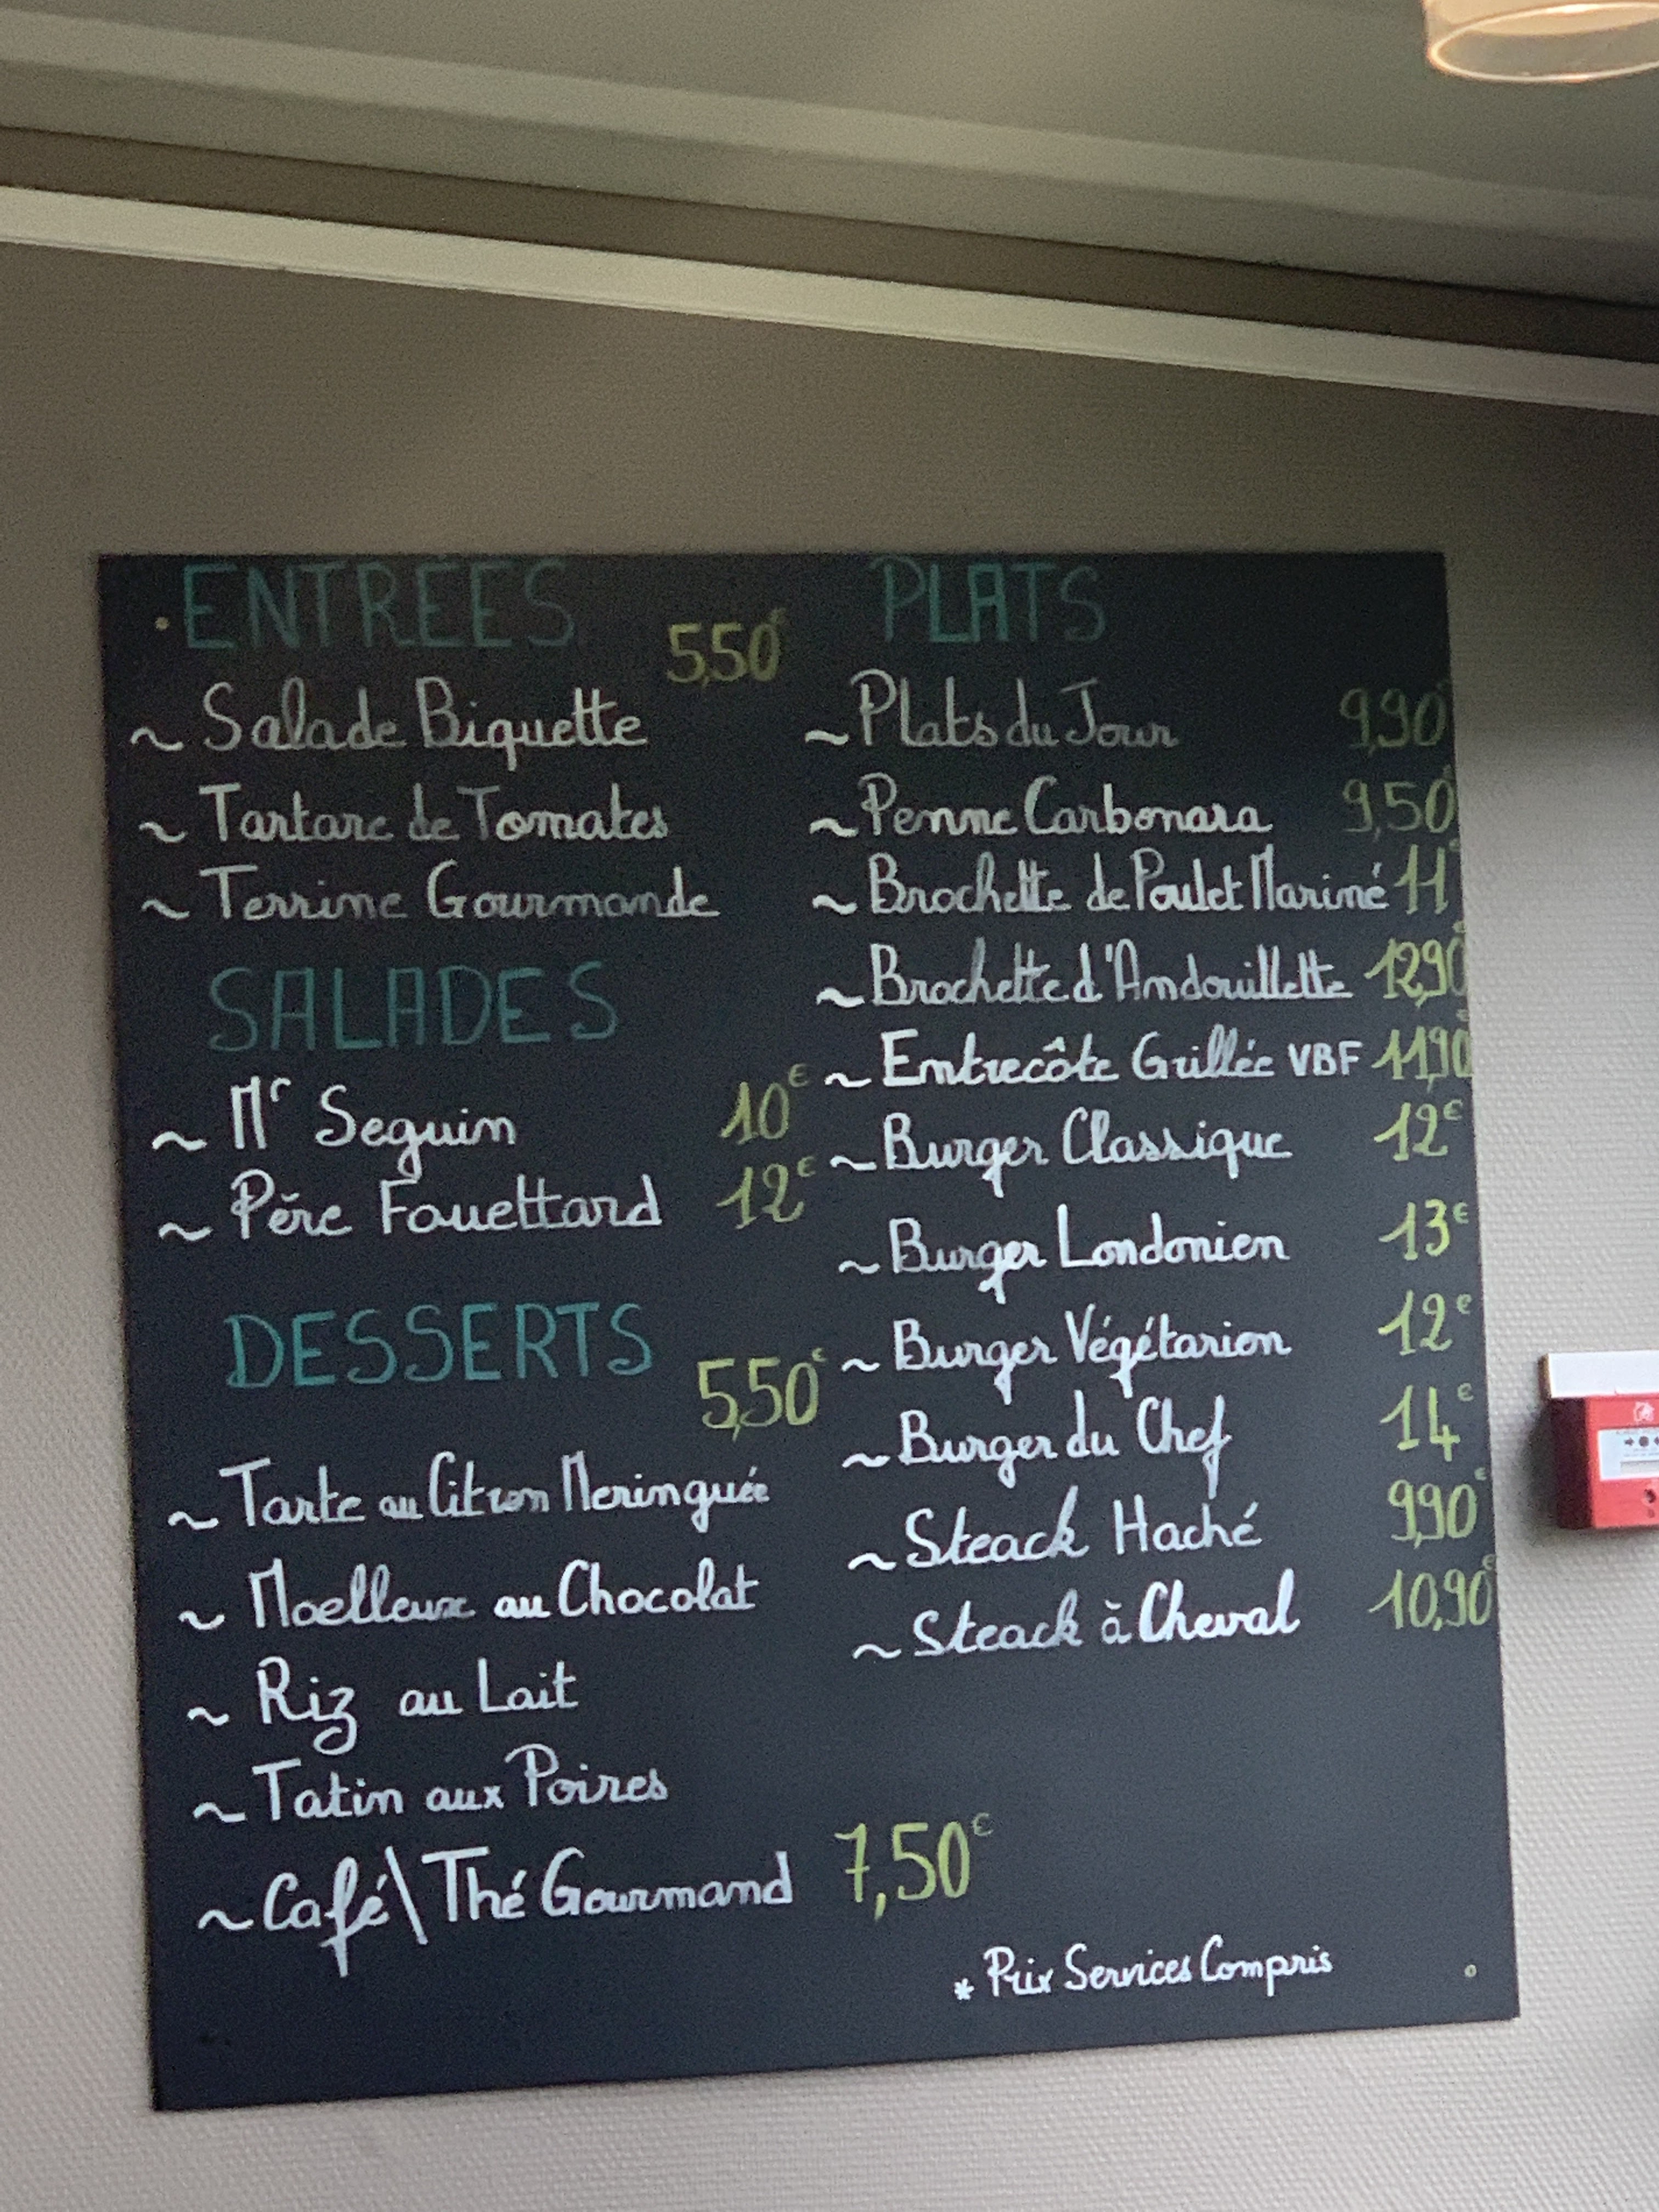 ENTRÉES
5,50€
~ Salade Biquette
~ Tartare de Tomates
~ Terrine Gourmande
SALADES
~ Mr Seguin 10€
~ Père Fouettard 12€
DESSERTS
5,50€
~ Tarte au Citron Meringuée
~ Moelleux au Chocolat
~ Riz au Lait
~ Tatin aux Poires
~ Café\Thé Gourmand 7,50€
PLATS
~ Plats du Jour 9,90€
~ Penne Carbonara 9,50€
~ Brochette de Poulet Mariné 11€
~ Brochette d'Andouillette 12,90€
~ Entrecôte Grillée VBF 11,90€
~ Burger Classique 12€
~ Burger Londonien 13€
~ Burger Végétarien 12€
~ Burger du Chef 14€
~ Steack Haché 9,90€
~ Steack à Cheval 10,90€
* Prix Services Compris